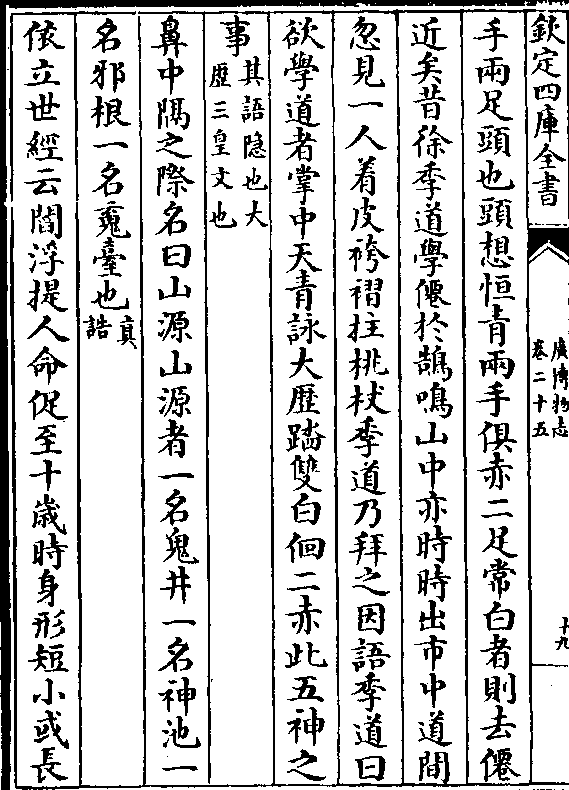 欽定四庫全書
廣博物志
卷二十五
十九
手兩足頭也頭想恒青兩手俱赤二足常白者則去僊
近矣昔徐季道學僊於鵠鳴山中亦時時出市中道間
忽見一人着皮袴褶拄桃杖季道乃拜之因語季道曰
欲學道者掌中天青詠大歷踏雙白佪二赤此五神之
事其語隐也大
歴三皇文也
鼻中隅之際名曰山源山源者一名鬼井一名神池一
名邪根一名䰟臺也真
誥
依立世經云閻浮提人命促至十歲時身形短小或長